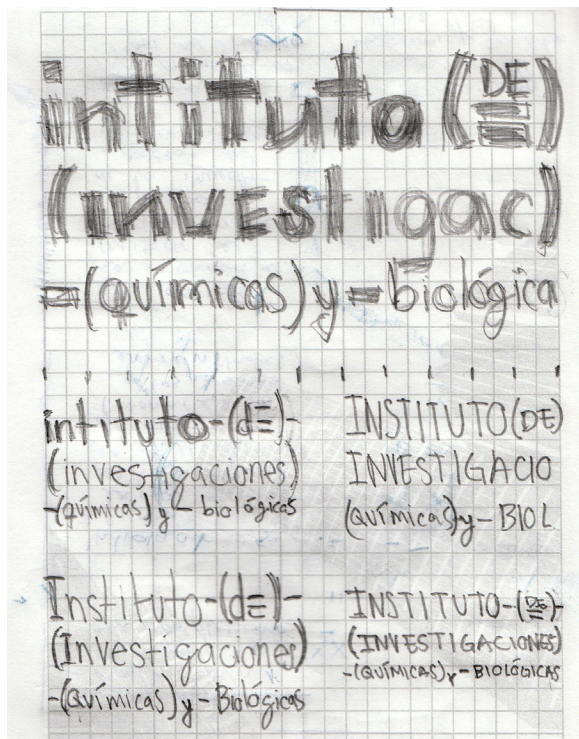 intituto (DE)
(INVEStigac)
=(Químicas) y = biológica
intituto-(dE)-
(investigaciones)
-(químicas) y - biológicas
INSTITUTO (DE)
INVESTIGACIO
(Químicas) y - BIOL
Instituto-(dE)-
(Investigaciones)
-(Químicas) y - Biológicas
INSTITUTO-(DE)-
(INVESTIGACIONES)
-(QUÍMICAS) y - BIOLÓGICAS